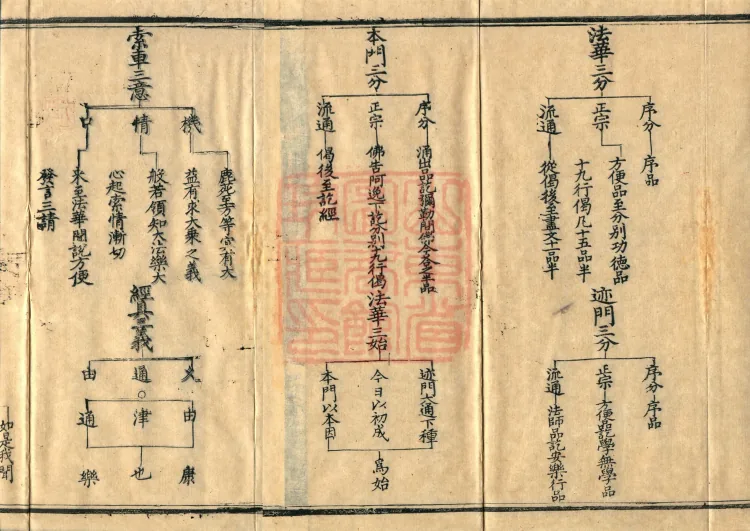 法華三分
序分 序品
正宗 方便品至分別功德品
十九行偈凡十五品半
流通 從偈後至盡文十一品半
迹門三分
序分 序品
正宗 方便品訖學無學品
流通 法師品訖安樂行品
本門三分
序分 涌出品訖彌勒
正宗 佛告阿逸下訖分別十九行偈
流通 偈後至訖經
法華三始
迹門大通下種
今日以初成
本門以本因
為始
索車三意
機 鹿苑至方等
益有求大乘之義
情 般若領知
心起索情漸切
口 來至法華聞說方便
發言三請
經具三義
通 津 也
由 康
由 通 樂
如是我聞